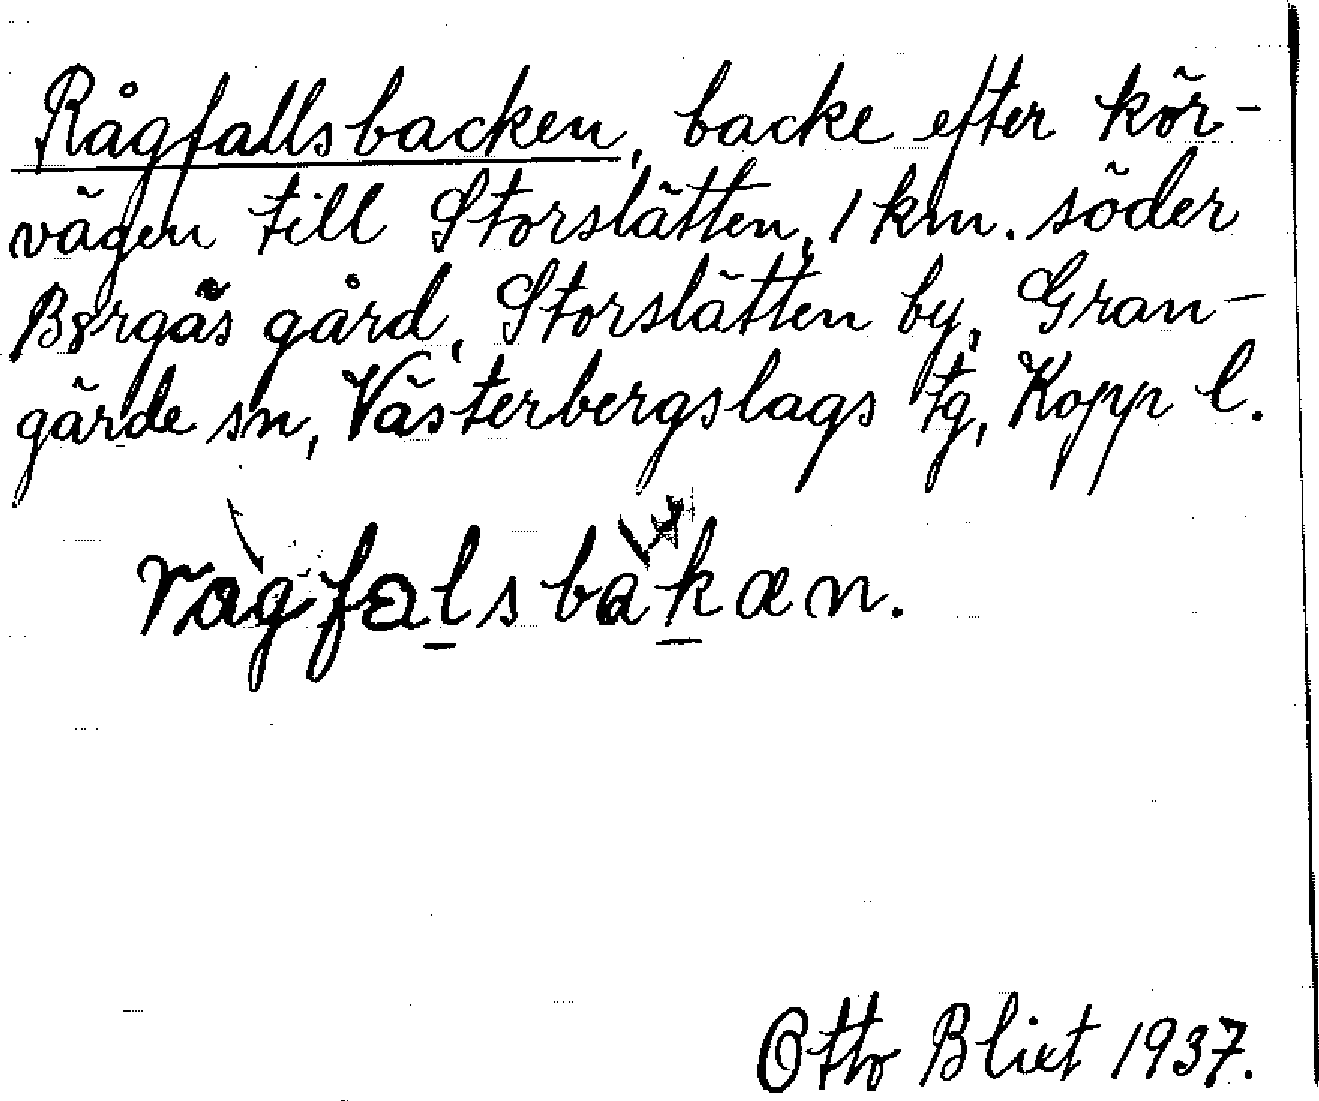 Rågfallsbacken, backe efter kör-
vägen till Storslätten, 1 km. söder
Bergås gård, Storslätten by, Gran-
gärde sn, Västerbergslags tg, Kopp l.
rågfalsbàkæn.
Otto Blixt 1937.